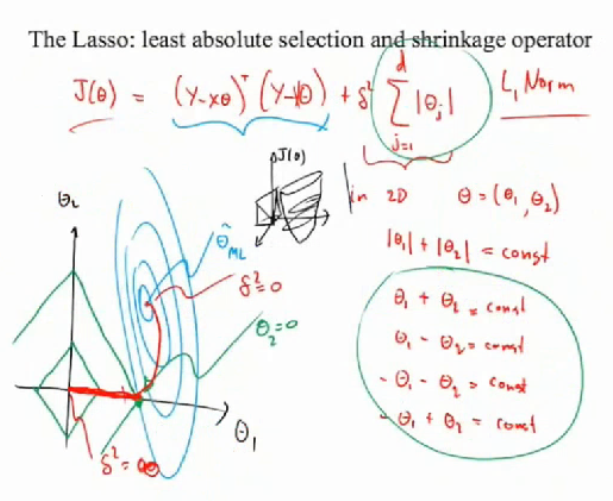 The Lasso: least absolute selection and shrinkage operator
J(θ) = (y-xθ)ᵀ(y-xθ) + δ² ∑ⱼ₌₁ᵈ |θⱼ| L₁ Norm
J(θ)
in 2D θ = (θ₁, θ₂)
|θ₁| + |θ₂| = const
θ₁ + θ₂ = const
θ₁ - θ₂ = const
- θ₁ - θ₂ = const
- θ₁ + θ₂ = const
θ₂
θ̂ ML
δ² = 0
θ₂ = 0
θ₁
δ² = ∞